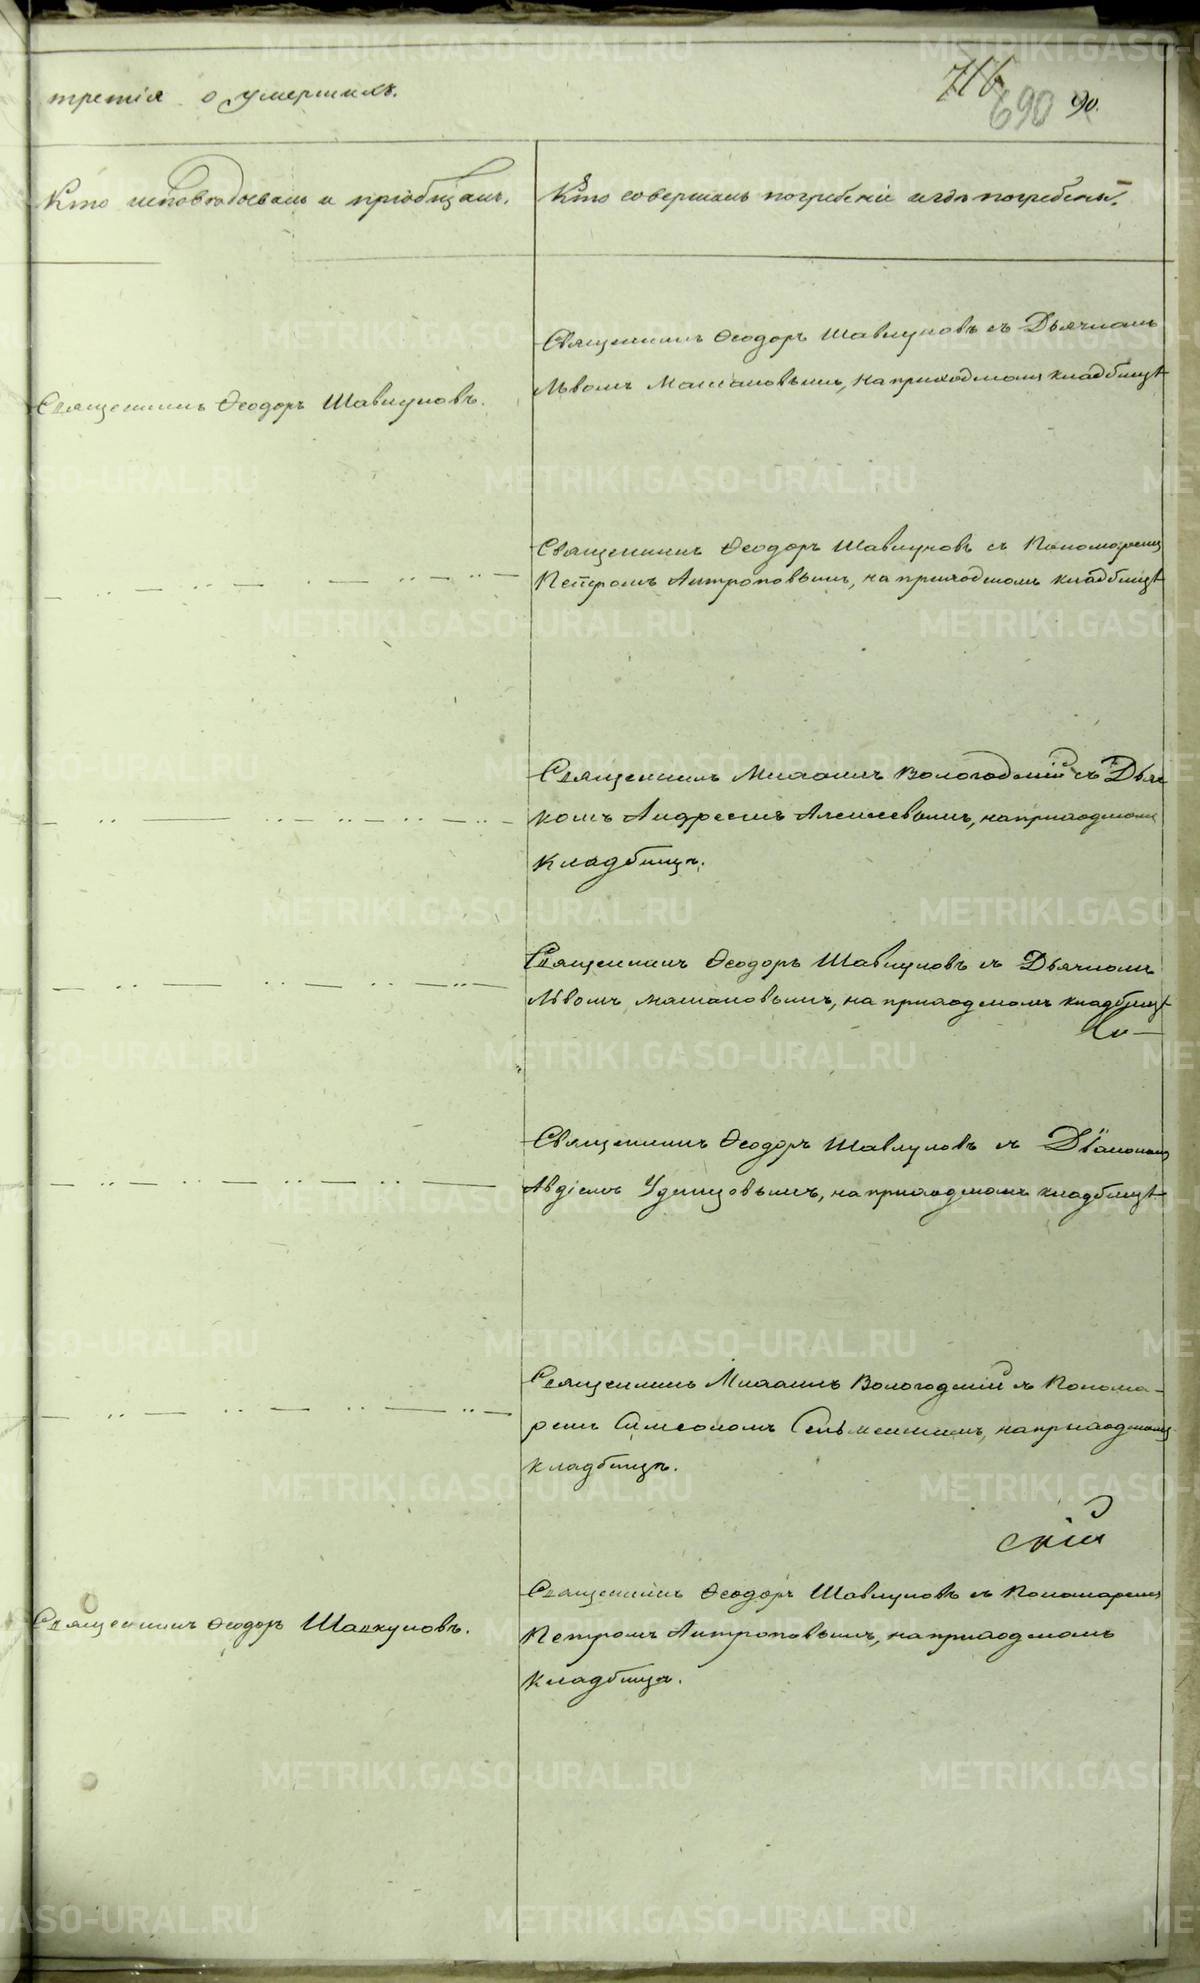 третія о умершихъ.
716
690 90.
Кто исповѣдывалъ и пріобщалъ.
Кто совершалъ погребеніе и гдѣ погребены.
Священникъ Ѳеодоръ Шавкуновъ съ Дьячкомъ
Львомъ, на приходскомъ кладбищѣ
Священникъ Ѳеодоръ Шавкуновъ.
Священникъ Ѳеодоръ Шавкуновъ съ Пономаремъ
Петромъ Антроповымъ, на приходскомъ кладбищѣ
Священникъ Михаилъ Вологодскій съ Дьяч
комъ Андреемъ Алексѣевымъ, на приходскомъ
кладбищѣ.
Священникъ Ѳеодоръ Шавкуновъ съ Дьячкомъ
Львомъ, на приходскомъ кладбищѣ
Священникъ Ѳеодоръ Шавкуновъ съ Діакономъ
Авдіемъ Удинцовымъ, на приходскомъ кладбищѣ
Священникъ Михаилъ Вологодскій съ Понома-
ремъ Симеономъ, на приходскомъ
кладбищѣ.
скій
Священникъ Ѳеодоръ Шавкуновъ съ Пономаремъ
Священникъ Ѳеодоръ Шавкуновъ.
Петромъ Антроповымъ, на приходскомъ
кладбищѣ.
METRIKI.GASO-URAL.RU